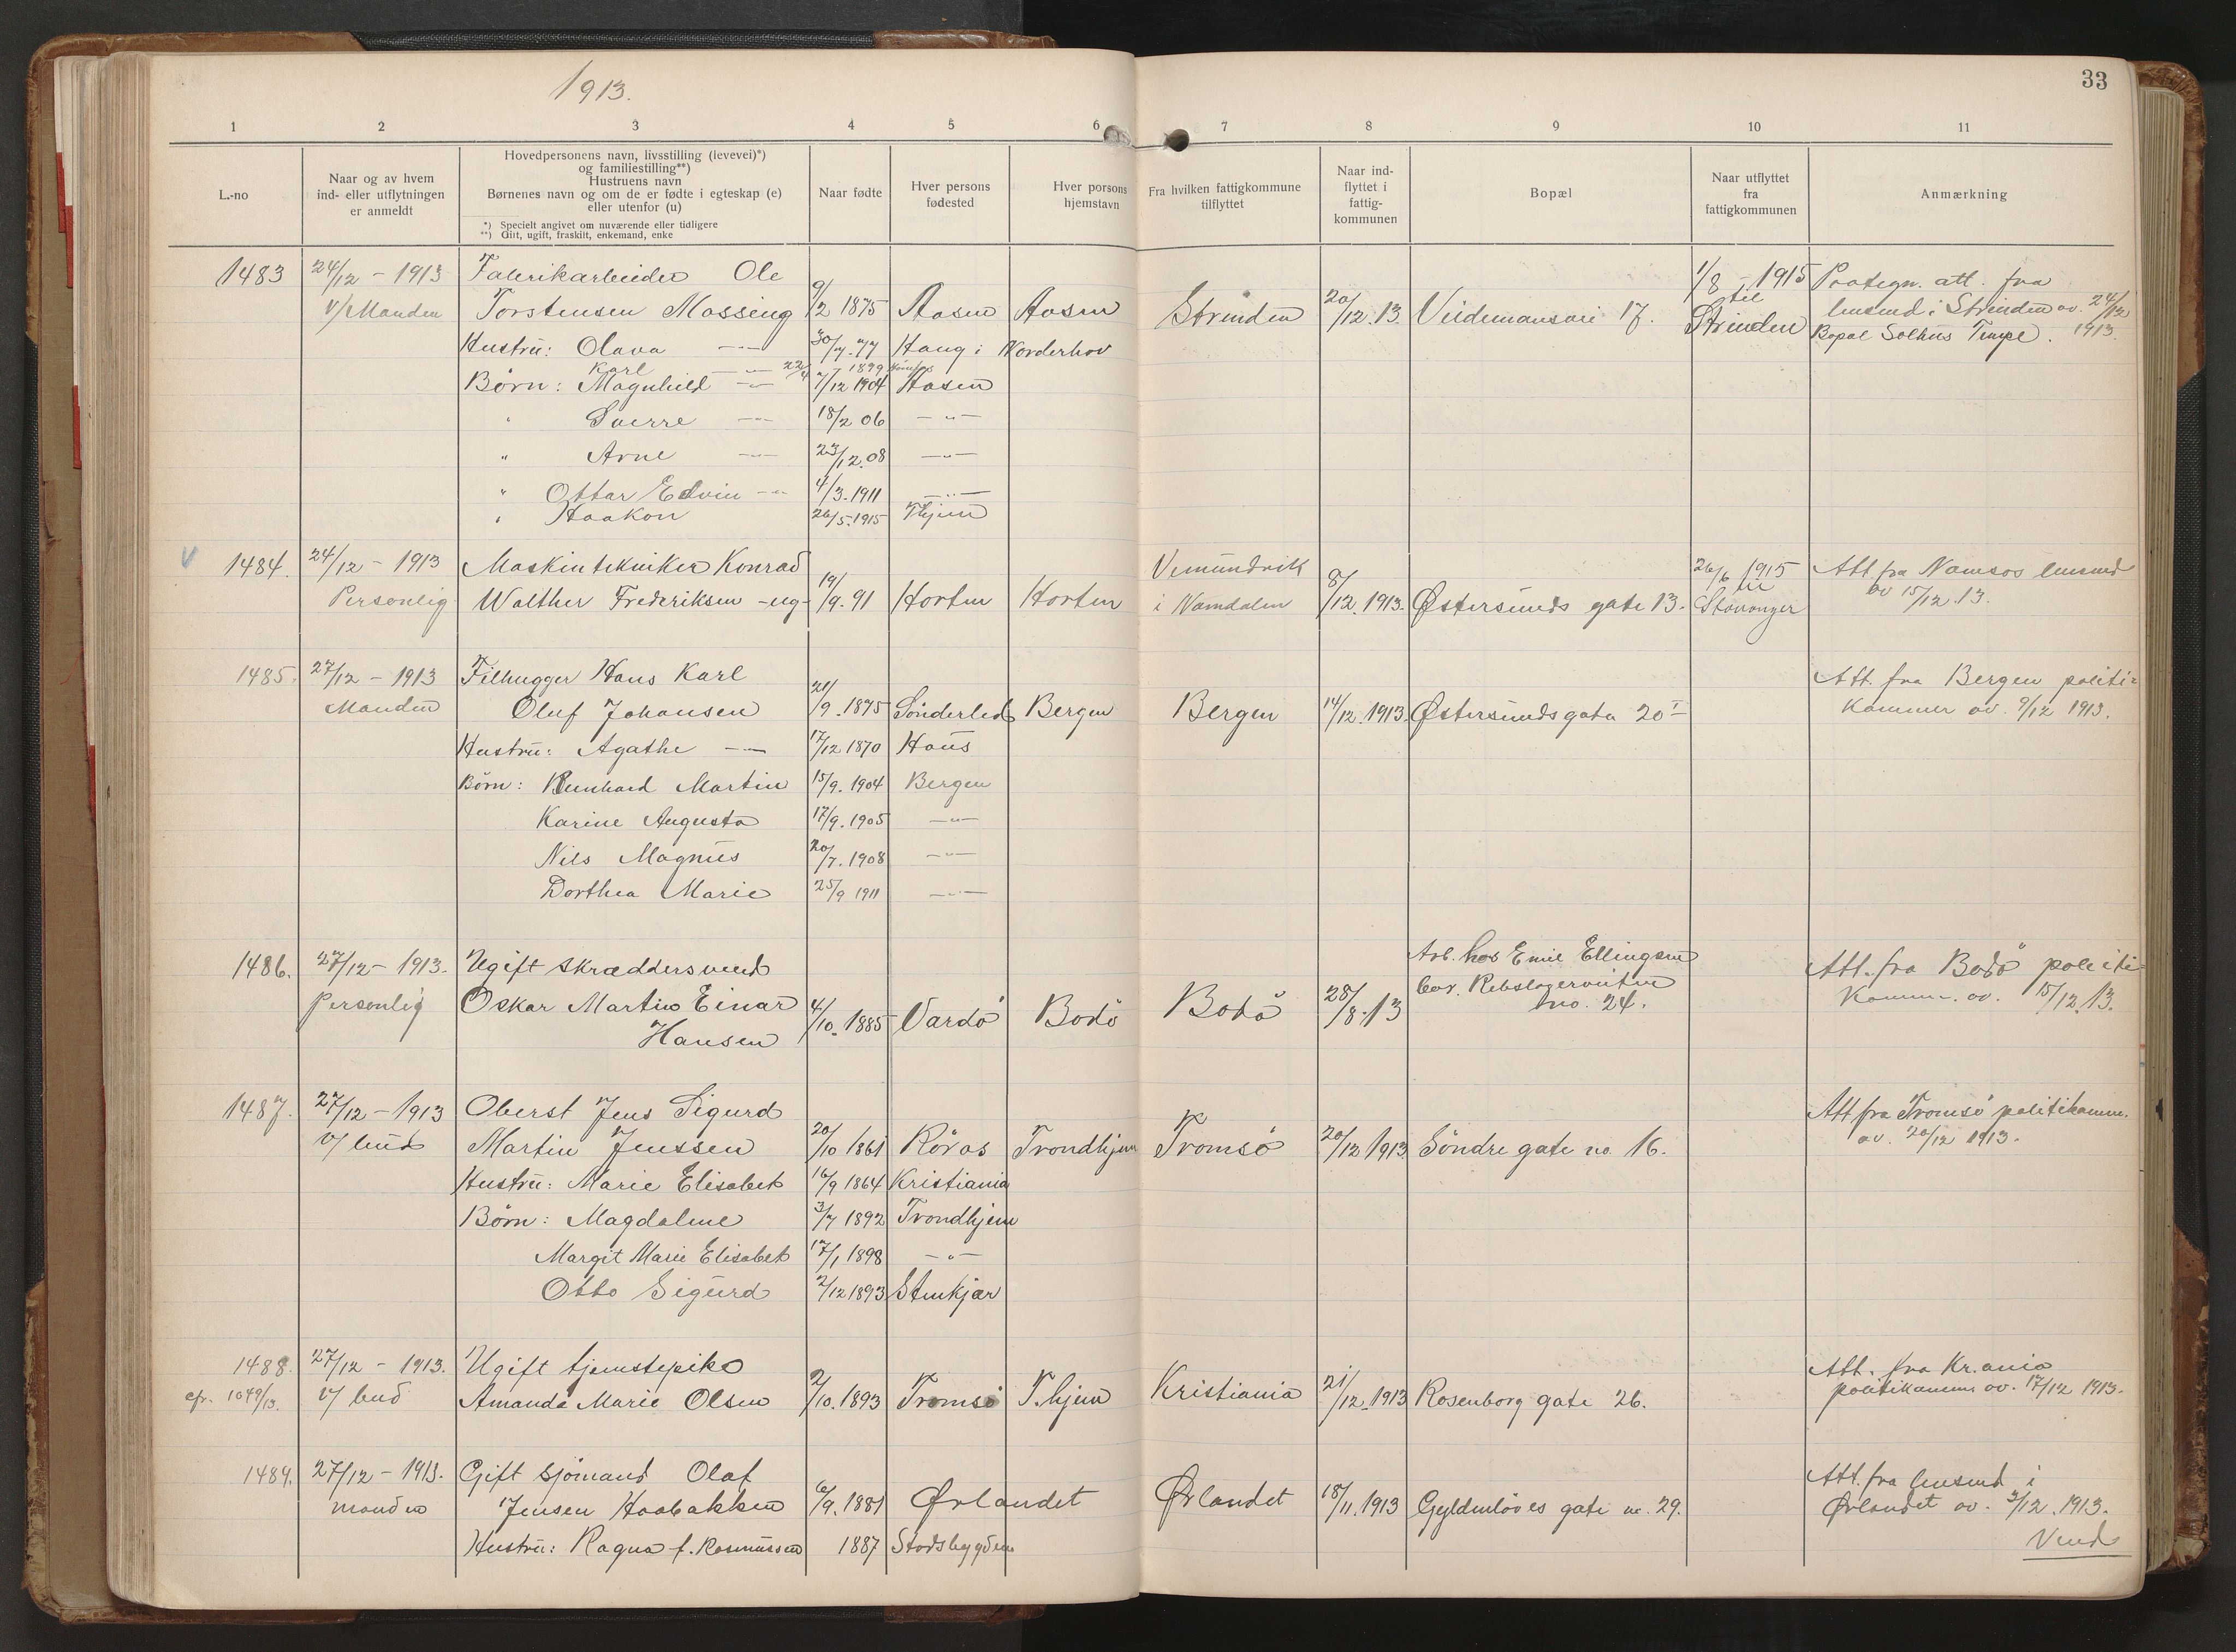 1913.
33
1 2 3 4 5 6 7 8 9 10 11
L.-no
Naar og av hvem
ind- eller utflytningen
er anmeldt
Hovedpersonens navn, livsstilling (levevei)*)
og familiestilling**)
Hustruens navn
Børnenes navn og om de er fødte i egteskap (e)
eller utenfor (u)
*) Specielt angivet om nuværende eller tidligere
**) Gift, ugift, fraskilt, enkemand, enke
Naar fødte
Hver persons
fødested
Hver persons
hjemstavn
Fra hvilken fattigkommune
tilflyttet
Naar ind-
flyttet i
fattig-
kommunen
Bopæl
Naar utflyttet
fra
fattigkommunen
Anmærkning
1483 24/12 - 1913 Fabrikarbeider Ole 1/8 - 1915 Paategn. att. fra
v/Manden Torstensen Mossing 9/2 1875 Aasen Aasen Strinden 20/12.13. Veidemansvei 17. til Strinden lensmd i Strinden av. 24/12 1913.
Bopæl Solhus Tempe.
Hustru: Olava -"- 30/7-77 Haug i Norderhov
Karl -"- 22/4 1899 Hønefos
Børn: Magnhild -"- 7/12 1904 Aasen
" Sverre -"- 18/2 06 -"-
" Arne -"- 23/12.08 -"-
" Ottar Edvin -"- 4/3-1911 -"-
" Haakon 26/5.1915 Thjem
V 1484. 24/12 - 1913 Maskintekniker Konrad Vemundvik 26/6 1915 Att fra Namsos lensmd
Personlig Walther Frederiksen -ug- 19/9-91 Horten Horten i Namdalen 8/12.1913. Østersunds gate 13. til Stavanger av 15/12.13.
1485. 27/12 - 1913 Filhugger Hans Karl Att. fra Bergen politi-
Manden Oluf Johansen 21/9.1875 Sönderled Bergen Bergen 14/12.1913. Østersundsgata 20 I kammer av. 9/12 1913.
Hustru: Agathe -"- 17/12 1870 Haus
Børn: Bernhard Martin 15/9.1904 Bergen
Karine Augusta 17/9.1905 -"-
Nils Magnus 20/7.1908 -"-
Dorthea Marie 25/9 1911 -"-
1486. 27/12 - 1913. Ugift skræddersvend Arb. hos Emil Ellingsen Att. fra Bodö politi
Personlig Oskar Martin Einar 4/10.1885 Vardö Bodö Bodö 28/8.13 bor. Rebslagerveiten kamm. av. 15/12.13.
Hansen no. 24.
1487. 27/12 - 1913 Oberst Jens Sigurd Att fra Tromsö politikamm.
v/ bud Martin Jenssen 20/10 1861 Röros Trondhjem Tromsö 20/12 1913 Söndre gate no 16. av. 20/12 1913.
Hustru: Marie Elisabet 16/9 1864 Kristiania
Børn: Magdalene 3/7 1892 Trondhjem
Margit Marie Elisabet 17/1 1898 -"-
Otto Sigurd 2/12 1893 Stenkjær
1488. 27/12 - 1913. Ugift tjenstepike Att. fra Kr.ania
cfr. 1049/13. v/ bud Amanda Marie Olsen 2/10.1893 Tromsö T.hjem Kristiania 21/12.1913 Rosenborg gate 26. politikamm. av. 17/12 1913.
1489. 27/12 - 1913. Gift sjömand Olaf Att. fra lensmd i
manden Jensen Haabakken 6/9.1881 Ørlandet Ørlandet 18/11.1913 Gyldenlöves gate no. 29. Ørlandet av. 3/12.1913.
Hustru: Ragna f. Rasmussen 1887 Stadsbygden Vend